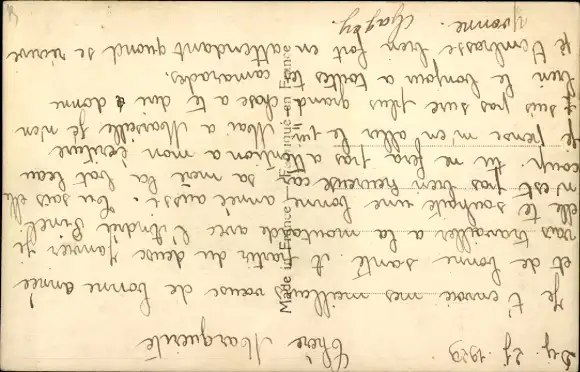 Dy. 27. 1929
Chère Marguerite
Je t'envoie mes meilleurs vœuse de bonne année
et de bonne santé. A partir du deuse Janvier je
vais travailler a la moutarde avec l'André Pinel.
elle te souhaite une bonne année aussi. Tu sais elle
n'est pas bien heureuse ca sa mere la bat beau
coup. tu ne fera pas attention a mon ècriture
Je pense m'en aller le juin Mai a Marseille je n'en
suis pas sure plus grand chose a te dire donne
bien le bonjour a toutes tes camarades.
je t'embrasse bien fort en attendant quand se rèvera
Yvonne. Chagey.
Made in France - Fabriqué en France